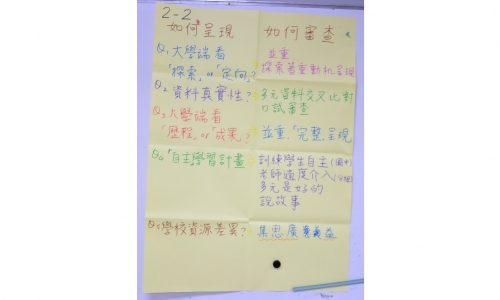 2-2
如何呈現
如何審查
Q1大學端看
「探索」or「定向」?
並重
探索著重動机呈現
Q2資料真實性?
多元資料交叉比對
口試審查
Q3大學端看
「歷程」or「成果」?
並重,「完整」呈現
Q4「自主學習計畫
訓練學生自主(國中)
老師適度介入
多元是好的
說故事
Q5學校資源差異?
集思廣益